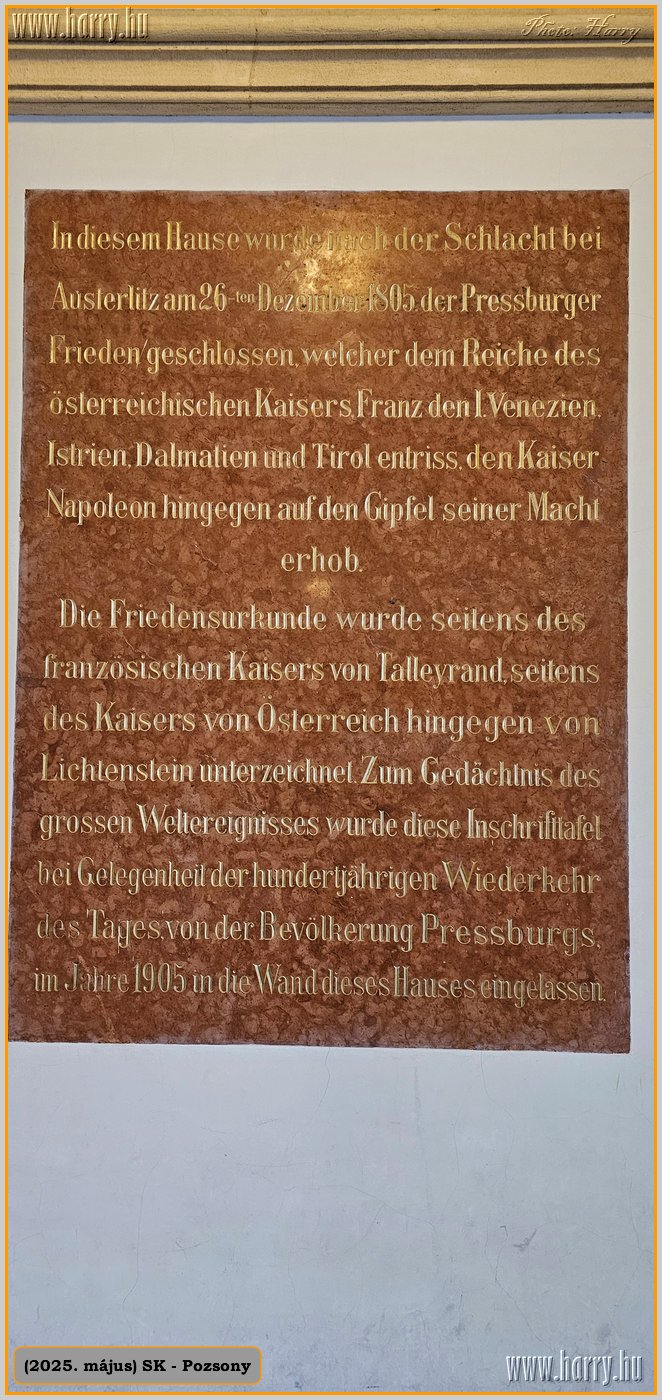 www.harry.hu
Photo: Harry
In diesem Hause wurde nach der Schlacht bei
Austerlitz am 26-ten Dezember 1805. der Pressburger
Frieden geschlossen, welcher dem Reiche des
österreichischen Kaisers, Franz den I. Venezien,
Istrien, Dalmatien und Tirol entriss, den Kaiser
Napoleon hingegen auf den Gipfel seiner Macht
erhob.
Die Friedensurkunde wurde seitens des
französischen Kaisers von Talleyrand, seitens
des Kaisers von Österreich hingegen von
Lichtenstein unterzeichnet. Zum Gedächtnis des
grossen Weltereignisses wurde diese Inschrifttafel
bei Gelegenheit der hundertjährigen Wiederkehr
des Tages, von der Bevölkerung Pressburgs,
im Jahre 1905 in die Wand dieses Hauses eingelassen.
(2025. május) SK - Pozsony
www.harry.hu